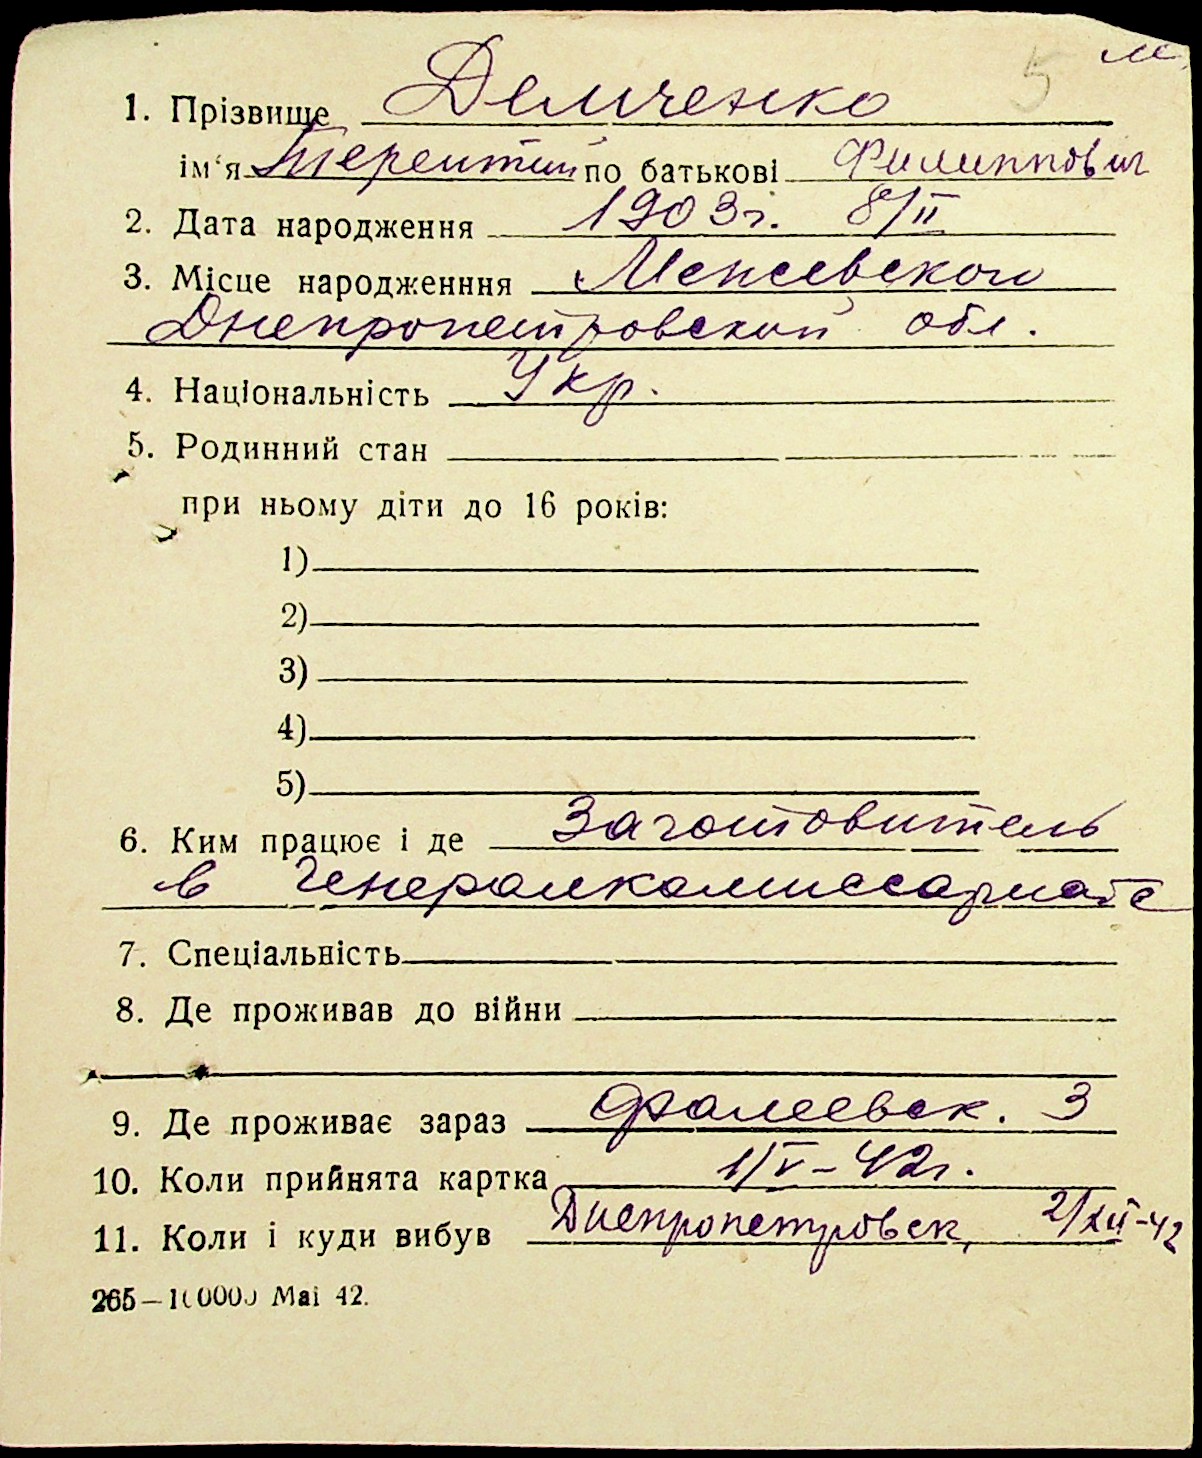 5 м.
1. Прізвище Демченко
ім'я Терентий по батькові Филиппович
2. Дата народження 1903 г. 8/II
3. Місце народженння Межевского
Днепропетровской обл.
4. Національність Укр.
5. Родинний стан
при ньому діти до 16 років:
1)
2)
3)
4)
5)
6. Ким працює і де Заготовитель
в Генералкомиссариате
7. Спеціальність
8. Де проживав до війни
9. Де проживає зараз Фалеевск. 3
10. Коли прийнята картка 1/V-42 г.
11. Коли і куди вибув Днепропетровск, 2/XII-42
265—100000 Маі 42.